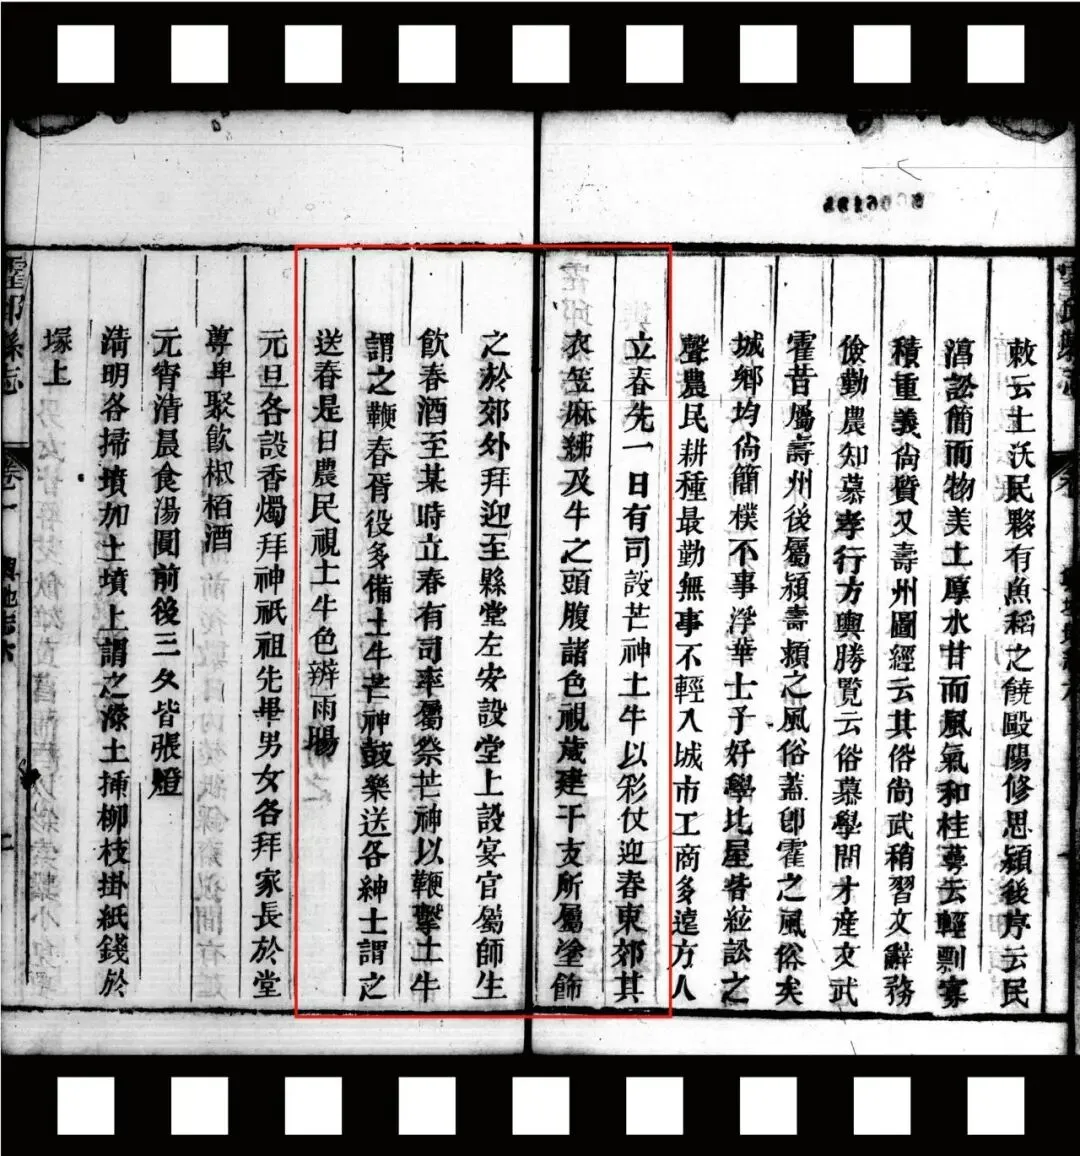 敕云土沃民夥有魚稻之饒歐陽修思潁後序云民
淳訟簡而物美土厚水甘而風氣和桂蕚云輕剽寡
積重義尙質又壽州圖經云其俗尙武稍習文辭務
儉勤農知慕孝行方輿勝覽云俗慕學問才產文武
霍昔屬壽州後屬潁壽潁之風俗蓋卽霍之風俗矣
城鄉均尙簡樸不事浮華士子好學比屋皆絃誦之
聲農民耕種最勤無事不輕入城市工商多遠方人
立春先一日有司設芒神土牛以彩仗迎春東郊其
衣笠麻縧及牛之頭腹諸色視歲建干支所屬塗飾
之於郊外拜迎至縣堂左安設堂上設宴官屬師生
飮春酒至某時立春有司率屬祭芒神以鞭擊土牛
謂之鞭春胥役多備土牛芒神鼓樂送各紳士謂之
送春是日農民視土牛色辨雨暘
元旦各設香燭拜神祇祖先畢男女各拜家長於堂
尊卑聚飮椒栢酒
元宵清晨食湯圓前後三夕皆張燈
清明各掃墳加土墳上謂之添土揷柳枝掛紙錢於
塚上
霍邱縣志
卷一
輿地志六